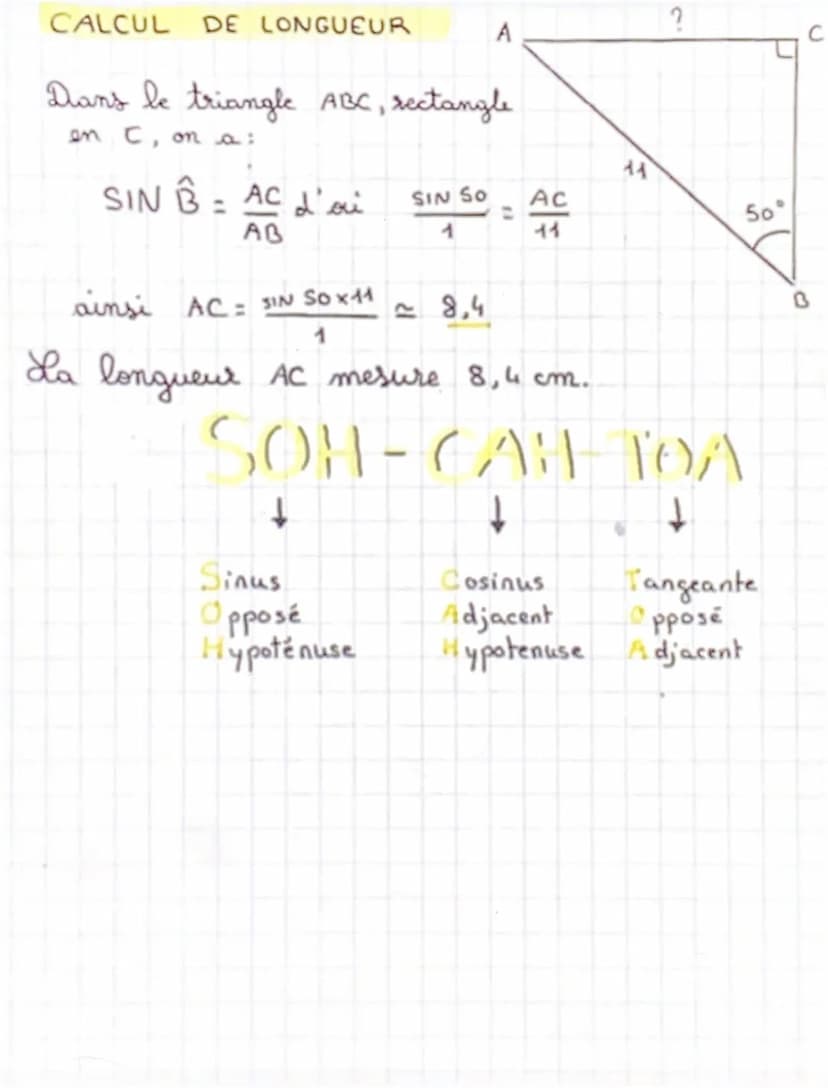 CALCUL DE LONGUEUR
A ? C
Dans le triangle ABC, rectangle
en C, on a :
11
50°
B
SIN B̂ = AC/AB d'où SIN 50/1 = AC/11
ainsi AC = SIN 50 x 11/1 ≃ 8,4
La longueur AC mesure 8,4 cm.
SOH - CAH - TOA
↓ ↓ ↓
Sinus Cosinus Tangeante
Opposé Adjacent Opposé
Hypoténuse Hypotenuse Adjacent